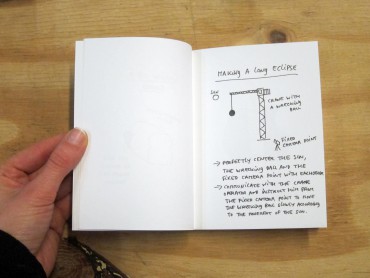 MAKING A LONG ECLIPSE
SUN
CRANE WITH
A WRECKING
BALL
FIXED
CAMERA POINT
→ PERFECTLY CENTER THE SUN,
THE WRECKING BALL AND THE
FIXED CAMERA POINT WITH EACHOTHER
→ COMMUNICATE WITH THE CRANE
OPERATOR AND INSTRUCT HIM FROM
THE FIXED CAMERA POINT TO MOVE
THE WRECKING BALL SLOWLY ACCORDING
TO THE MOVEMENT OF THE SUN.